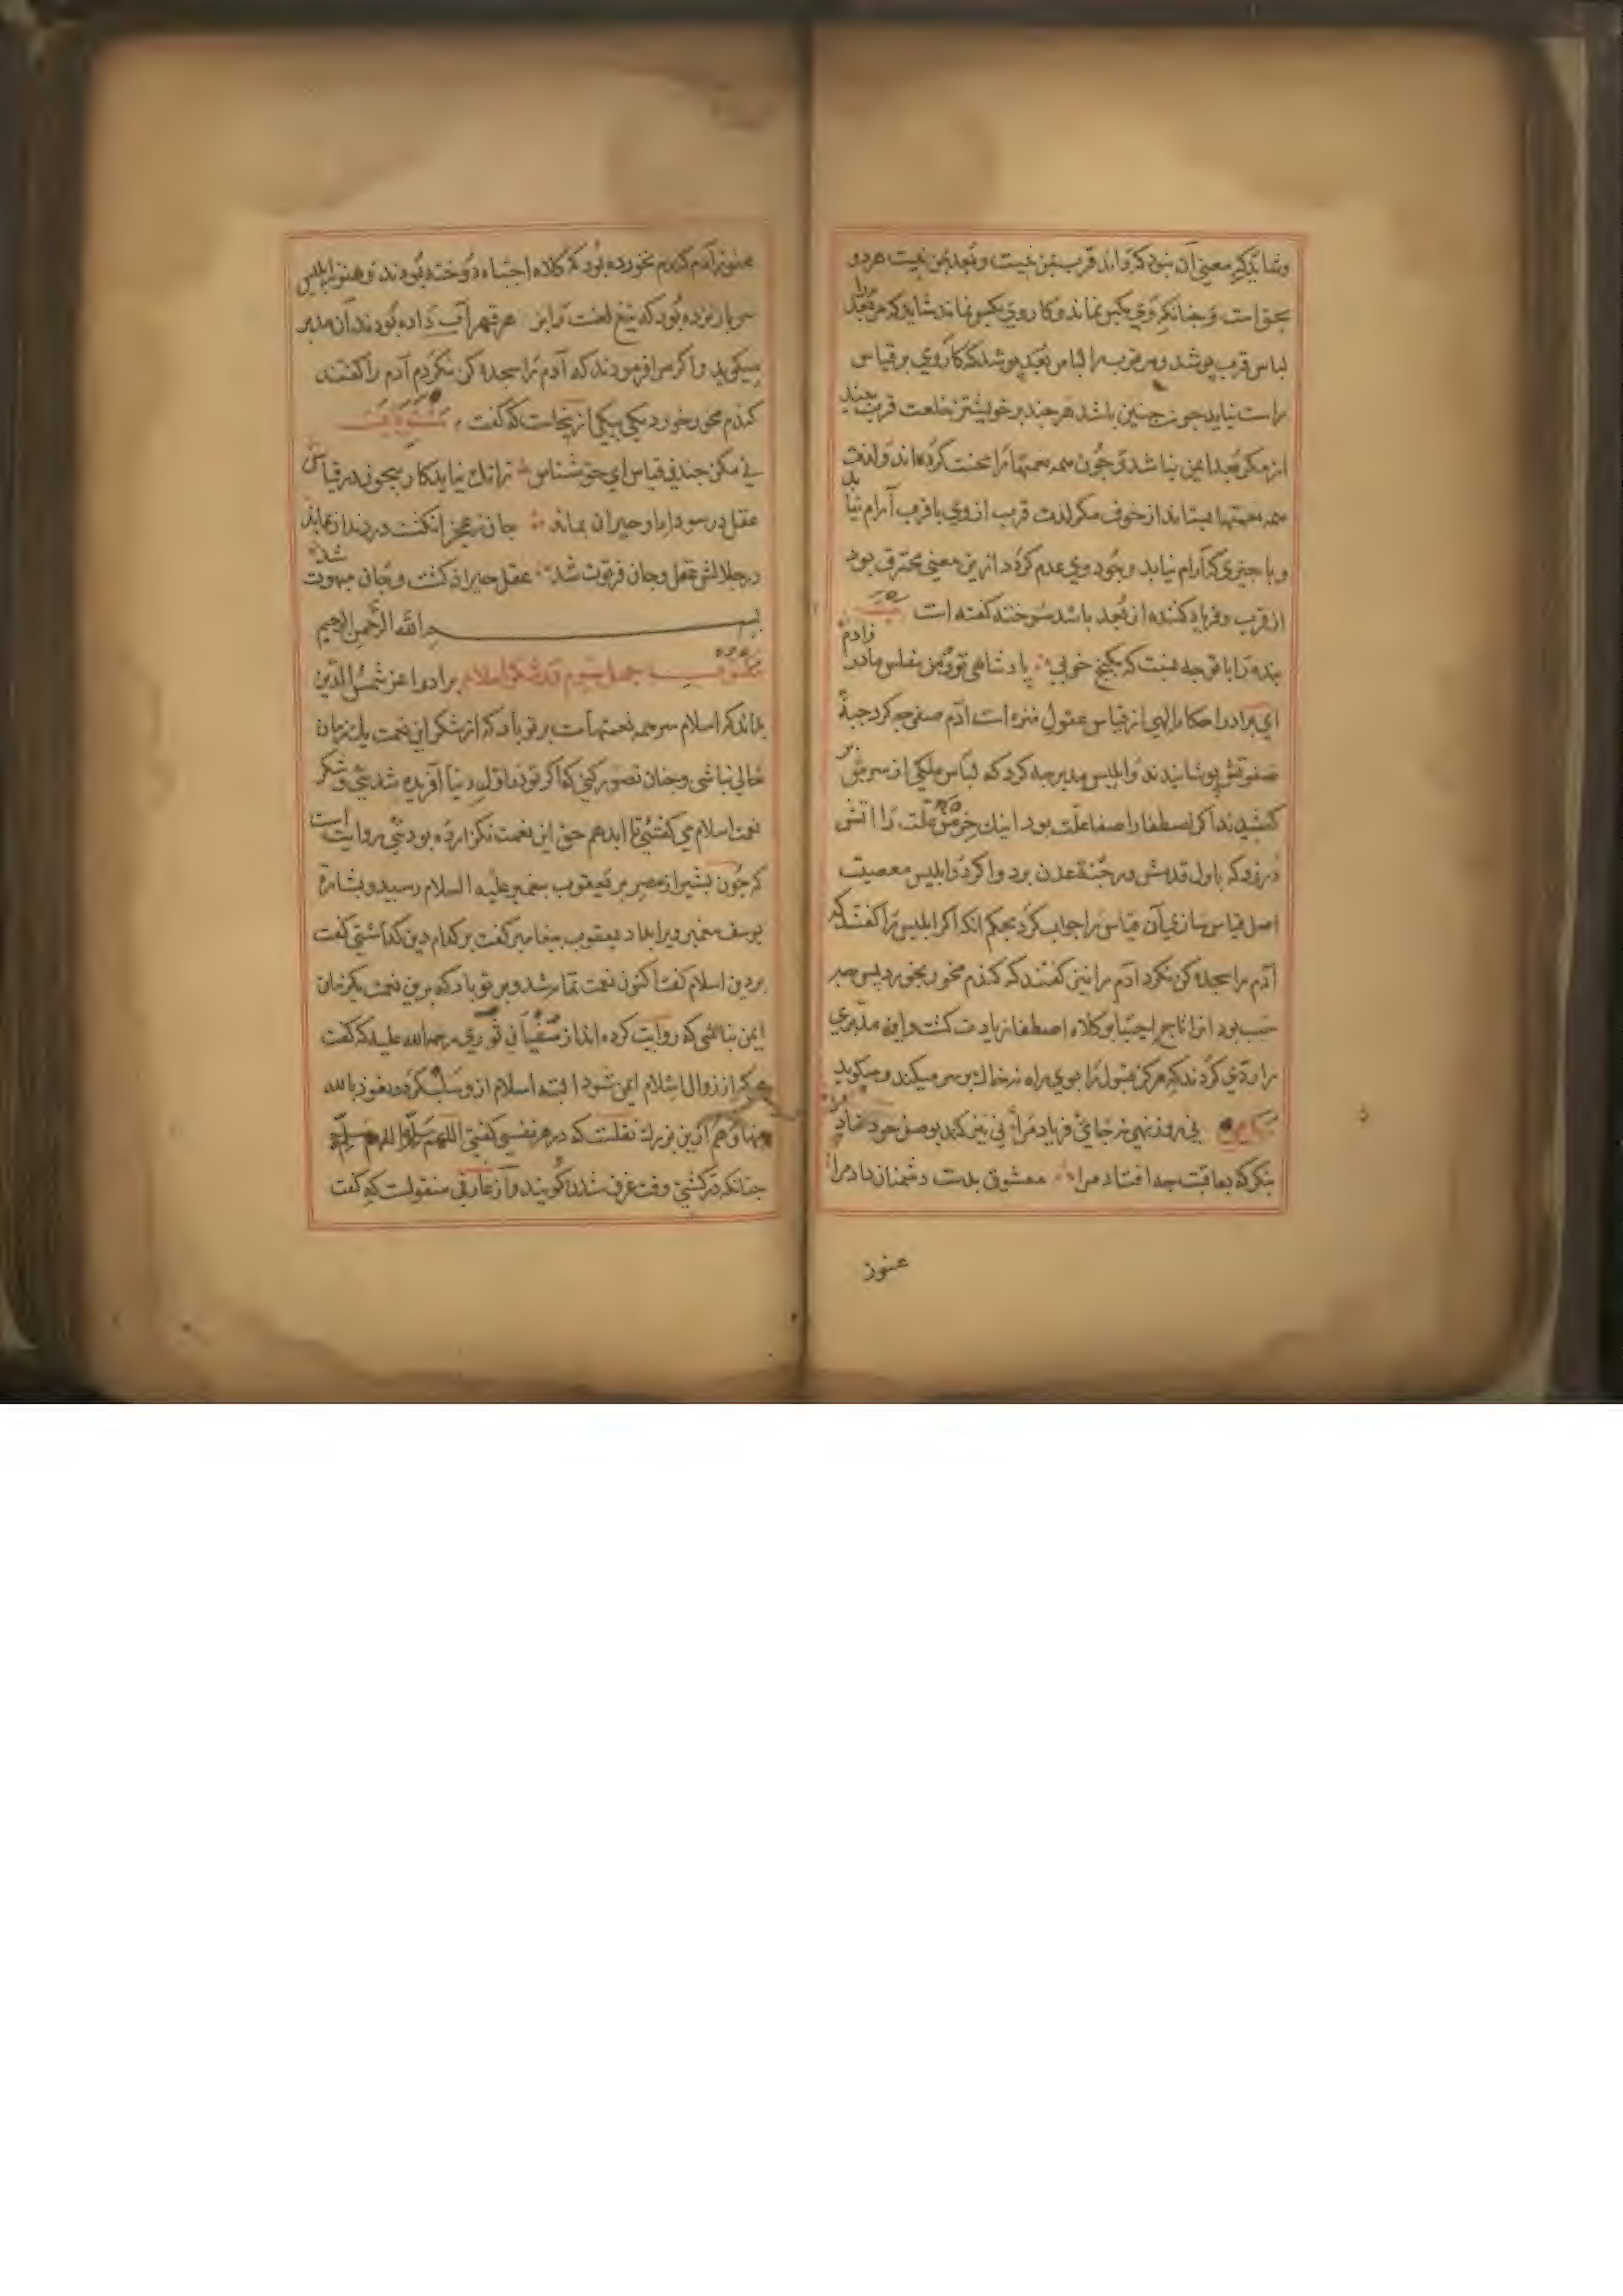 وشاید که معنی آن بود که داند قرب بمن نیست و بعد بمن نیست هر دو
بحق است و چنانکه وی بکس نماند و کار وی بکس نماند شاید که مر بعد را
لباس قرب پوشد و مر قرب را لباس بعد پوشد که کار وی بر قیاس
راست نیاید چون چنین باشد هر چند بر خویشتن خلعت قرب بیند
از مکر بعد ایمن نباشد و چون همه نعمتها را محنت کرده‌اند و لذت
همه نعمتها بستاند از خوف مکر لذت قرب از وی با قرب آرام نیابد
و با چیزی که آرام نیابد وجود وی عدم کردد ازین معنی محترق بود
از قرب و فریاد کننده از بعد باشد سوخته گفته است بیت
بنده را با تو چه نسبت که بکنج خوبی پادشاهی تو و من مفلس مادر زادم
ای برادر احکام الهی از قیاس عقول منزه است آدم صفی چه کرد جبهٔ
صفوتش پوشانیدند و ابلیس مدبر چه کرد که لباس ملکی از سرش بر
کشیدند اکر اصطفا را صفا علت بود اینک خرمن علت را آتش
در زد که باول قدمش در جنة عدن برد و اکر ابلیس معصیت
اصل قیاس سازی آن قیاس را جواب کرد بحکم آنکه اکر ابلیس را گفتند که
آدم را سجده کن نکرد آدم را نیز گفتند که کندم مخور بخورد پس چه
سبب بود این را تاج اجتبا و کلاه اصطفا زیادت کشت و این مدبری
را ردی کردند که هرکز قبول را بوی راه نه خاک بر سر میکند و میکوید
نی روز بهی نه جای فریاد مرا
بنکر که بعاقبت چه افتاد مرا معشوق بدست دشمنان داد مرا
هنوز
هنوز آدم کندم نخورده بود که کلاه اجتباء دوخته بودند و هنوز ابلیس
سر باز نزده بود که تیغ لعنت را بزهر قهر آب داده بودند آن مدبر
میکوید و اکر مرا فرمودند که آدم را سجده کن نکردم آدم را گفتند
کندم مخور خورد یکی بیکی ازینجاست که گفت مثنوی
نی مکن چندین قیاس ای حق شناس زانک نیاید کار بیچون در قیاس
عقل در سودای او حیران بماند جان ز عجز انکشت در دندان بماند
در جلالش عقل و جان فرتوت شد عقل حیران کشت و جان مبهوت شد
بسم الله الرحمن الرحیم
مکتوب چهل سوم در شکر اسلام برادر اعز شمس الدین
بداند که اسلام سر همه نعمتهاست بر تو باد که از شکر این نعمت یک زمان
خالی نباشی و چنان تصور کنی که اکر تو در اول دنیا آفریده شدیی و شکر
نعمت اسلام می گفتی تا ابد هم حق این نعمت نکزارده بودیی روایت است
که چون بشیر از مصر بر یعقوب پیغمبر علیه السلام رسید و بشارة
یوسف پیغمبر ویرا بداد یعقوب پیغامبر گفت بر کدام دین گذاشتی گفت
بر دین اسلام گفت اکنون نعمت تمام شد و بر تو باد که برین نعمت یکزمان
ایمن نباشی که روایت کرده‌اند از سفیان ثوری رحمه الله علیه که گفت
هرکه از زوال اسلام ایمن شود البته اسلام ازو سلب کردد نعوذ بالله
منها و هم ازین بزرک نقلست که در هر نفسی گفتی اللهم سلم اللهم سلم
چنانکه در کشتی وقت غرق شدن کویند و از عارفی منقولست که گفت